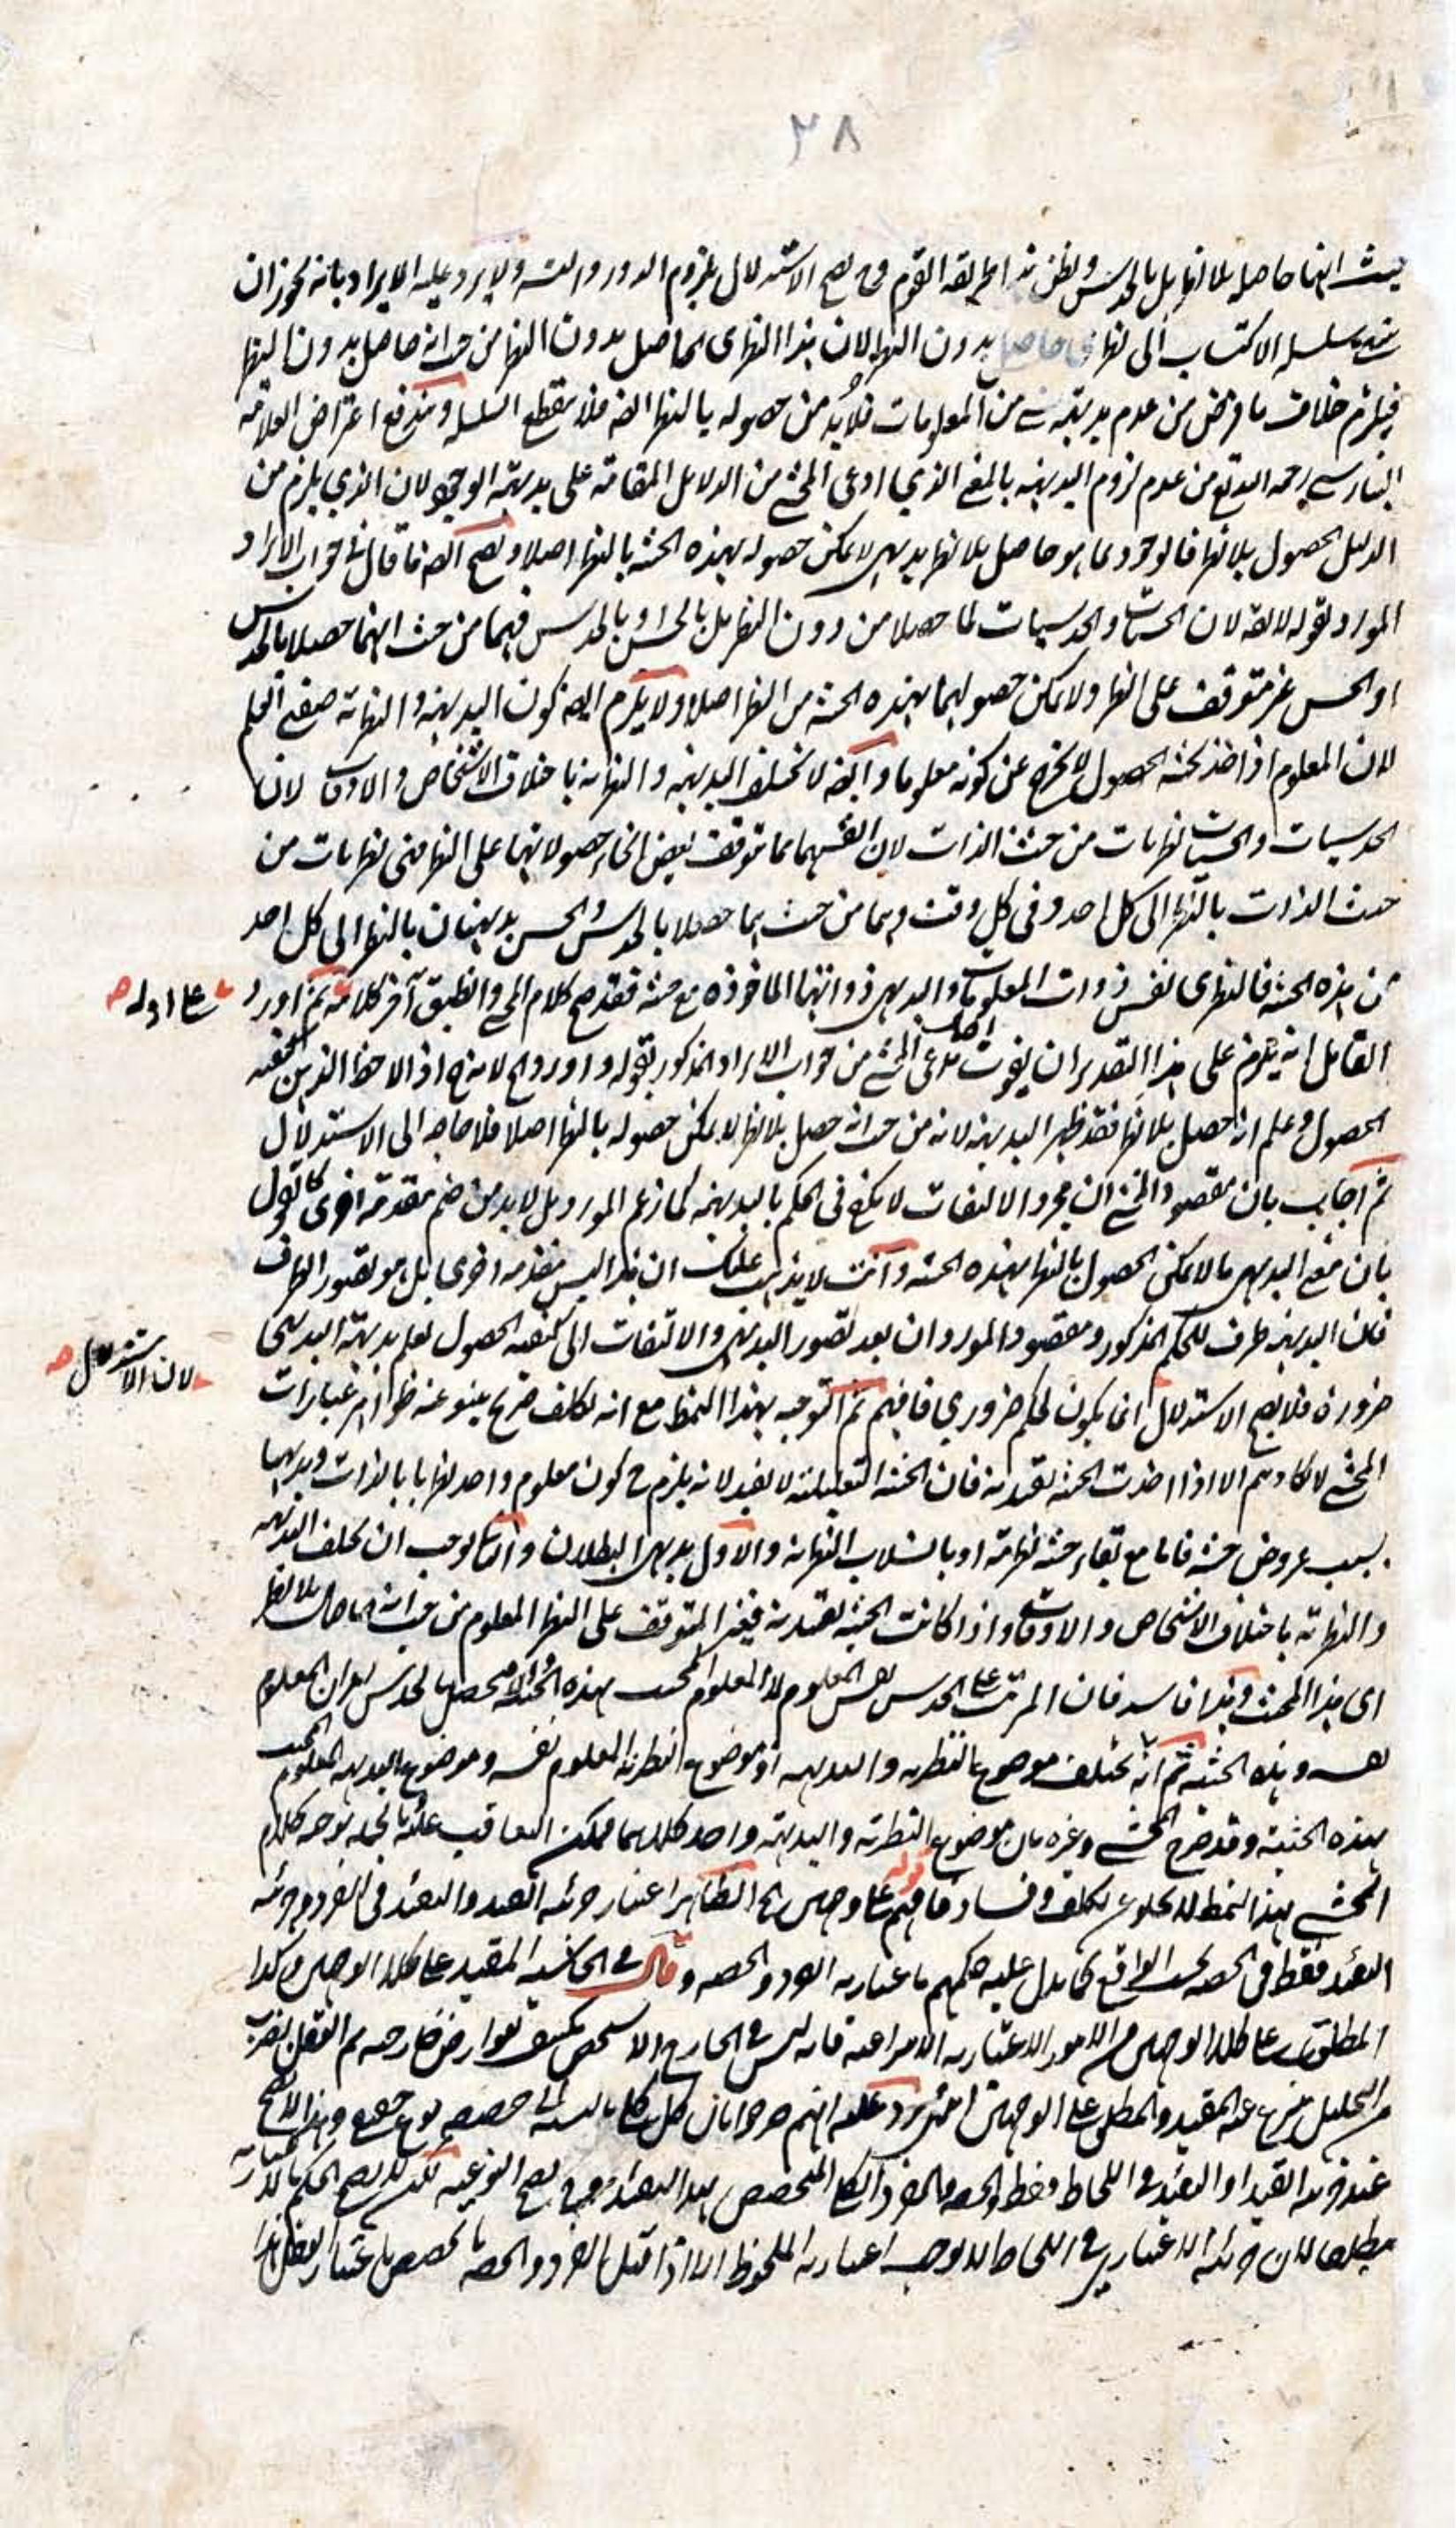 ٣٨
حيث انها حاصلة بلا نظر بل بالحدس ولظن هذا طريقة القوم في الاستدلال بلزوم الدور والتسلسل ولا يرد عليه الايراد بانه يجوز ان
سلسلة الاكتساب الى نظري حاصل بدون النظر لان هذا النظري الحاصل بدون النظر من حيث انه حاصل بدون النظر
فيلزم خلاف ما فرض من عدم بديهية شيء من المعلومات فلا بد من حصوله بالنظر ايضا فلا ينقطع السلسلة ويندفع اعتراض العلامة
رحمه الله تع من عدم لزوم البديهية بالمعنى الذي ادعى المحشي من الدلائل المقامة على بديهية الوجود لان الذي يلزم من
الدليل الحصول بلا نظر فالوجود بما هو حاصل بلا نظر بديهي لا يمكن حصوله بهذه الحيثية بالنظر اصلا ويصح ايضا ما قال في جواب الايراد
المورد بقوله لان الحسيات والحدسيات لما حصلا من دون النظر بل بالحس او بالحدس فهما من حيث انهما حصلا بالحدس
او الحس غير متوقف على النظر ولا يمكن حصولهما بهذه الحيثية من النظر اصلا ولا يلزم ايضا كون البديهية والنظرية صفتي العلم
لان المعلوم اذا اخذ بحيثية الحصول لا يخرج عن كونه معلوما وايضا لا تختلف البديهية والنظرية باختلاف الاشخاص والاوقات لان
الحدسيات والحسيات نظريات من حيث الذات لان انفسهما مما توقف بعض انحاء حصولاتها على النظر فهي نظريات من
حيث الذات بالنظر الى كل احد وفي كل وقت وهما من حيث هما حصلا بالحدس والحس بديهيتان بالنظر الى كل احد
من هذه الحيثية فالنظري نفس ذوات المعلومات والبديهي ذواتها الماخوذة مع حيثية فقد صح كلام المحشي وانطبق آخر كلامه ثم اورد
القائل انه يلزم على هذا التقدير ان يفوت مدعى المحشي من جواب الايراد المذكور بقوله واورد لانه اذا لاحظ الذهن كيفية
الحصول وعلم انه حصل بلا نظر فقد ظهر البديهية لانه من حيث انه حصل بلا نظر لا يمكن حصوله بالنظر اصلا فلا حاجة الى الاستدلال
ثم اجاب بان مقصود المحشي ان مجرد الالتفات لا يكفي في الحكم بالبديهية كما زعم المورد بل لا بد من ضم مقدمة اخرى كالقول
بان معنى البديهي ما لا يمكن الحصول بالنظر بهذه الحيثية وانت لا يذهب عليك ان هذا ليس مقدمة اخرى بل هو تصور الطرف
فان البديهية طرف للحكم المذكور ومقصود المورد ان بعد تصور البديهي والالتفات الى كيفية الحصول يعلم بديهية البديهي
ضرورة فلا يصح الاستدلال اي يكون الحكم ضروري فافهم ثم التوجيه بهذا النمط مع انه تكلف صريح ينبو عنه ظواهر عبارات
المحشي لا يكاد يتم الا اذا اخذت الحيثية تقييدية فان الحيثية التعليلية لا تفيد لانه يلزم ح كون معلوم واحد نظريا بالذات وبديهيا
بسبب عروض حيثية فاما مع بقاء حيثية نظريته او بانسلاب النظرية والاول بديهي البطلان والثاني يوجب ان يختلف البديهية
والنظرية باختلاف الاشخاص والاوقات واذا كانت الحيثية تقييدية فيغير المتوقف على النظر المعلوم من حيث انه حاصل بلا نظر
اي هذا المحيث وهذا فاسد فان المرتب على الحدس نفس المعلوم لا المعلوم المحيث بهذه الحيثية
وهذه الحيثية ثم انه يختلف موضوع النظرية والبديهية اذ موضوع النظرية المعلوم نفسه وموضوع البديهية المعلوم المحيث
بهذه الحيثية وقد صرح المحشي وغيره بان موضوع النظرية والبديهية واحد كلاهما يمكن التعاقب عليه بالجملة توجيه كلام
المحشي بهذا النمط لا يخلو عن تكلف وفساد فافهم قوله على وجهين الخ الظاهر اعتبار جزئية القيد والتقييد في الفرد وجزئية
التقييد فقط في الحصة بحسب الواقع كما يدل عليه حكمهم باعتبارية الفرد والحصة وقال في الحاشية المقيد على كلا الوجهين وكذا
المطلق على كلا الوجهين من الامور الاعتبارية الانتزاعية فانه ليس في الخارج الا شخص مكتنف بعوارض خارجية ثم العقل بضرب
من التحليل ينتزع عنه المقيد والمطلق على الوجهين انتهى يرد عليه انهم صرحوا بان كل كلي بالنسبة الى حصصه نوع حقيقي وهذا لا يصح
عند جزئية القيد او التقييد في اللحاظ فقط
مطلقا لان جزئية الاعتباري في اللحاظ لا يوجب اعتبارية الملحوظ الا اذا قيل بالفرد والحصة
على ادلة صح
لان الاستدلال صح